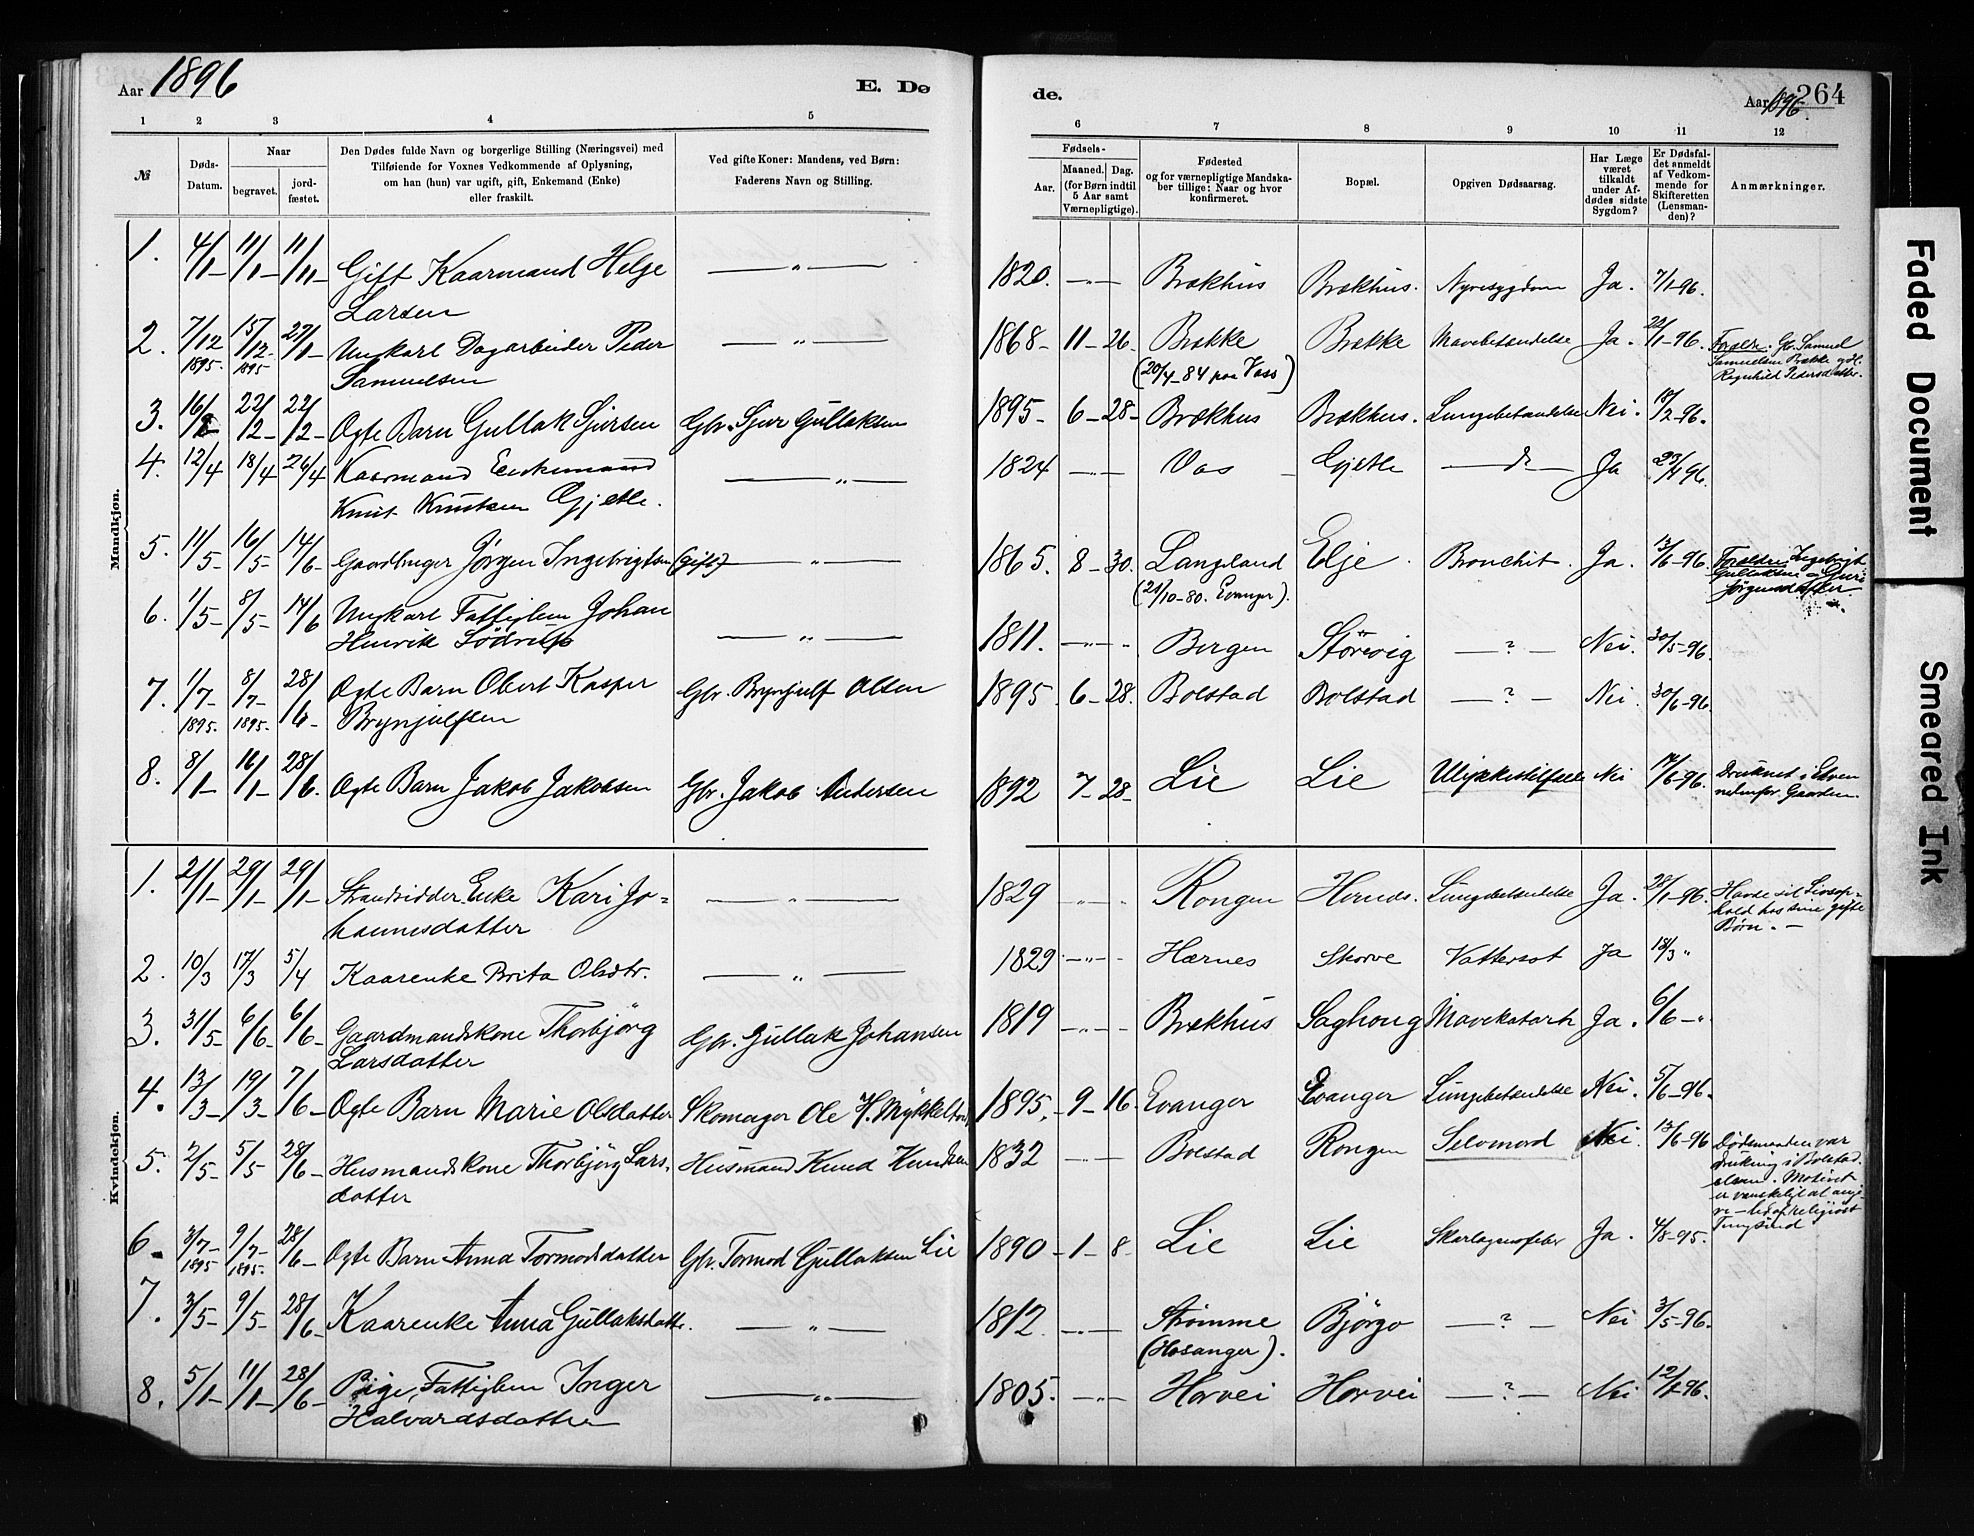 Aar 1896
E. Dø
de.
Aar 1896
264
1 2 3 4 5
6 7 8 9 10 11 12
№
Døds-Datum.
Naar
begravet.
jord-fæstet.
Den Dødes fulde Navn og borgerlige Stilling (Næringsvei) med
Tilføiende for Voxnes Vedkommende af Oplysning,
om han (hun) var ugift, gift, Enkemand (Enke)
eller fraskilt.
Ved gifte Koner: Mandens, ved Børn:
Faderens Navn og Stilling.
Fødsels-
Aar.
Maaned. Dag.
(for Børn indtil
5 Aar samt
Værnepligtige).
Fødested
og for værnepligtige Mandska-
ber tillige: Naar og hvor
konfirmeret.
Bopæl.
Opgiven Dødsaarsag.
Har Læge
været
tilkaldt
under Af-
dødes sidste
Sygdom?
Er Dødsfal-
det anmeldt
af Vedkom-
mende for
Skifteretten
(Lensman-
den)?
Anmærkninger.
Mandkjøn.
1. 4/1 – 11/1 – 11/11 – Gift Kaarmand Helge — " — 1820. — " — Brækhus Brækhus. Nyresygdom Ja. 7/1-96.
Larsen
2. 7/12 15/12 – 27/1 – Ungkarl Dagarbeider Peder — " — 1868 – 11 – 26. Brække Brække Mavebetændelse Ja. 22/1-96. Forældre. Gb. Samuel
1895. 1895 Samuelsen (20/4-84 paa Voss) Samuelsen Brække og H.
Ragnhild Pedersdatter.
3. 16/2 22/2 – 22/2 – Ægte Barn Gullak Sjursen Gbr. Sjur Gullaksen 1895 – 6 – 28 – Brækhus Brækhus. Lungebetændelse Nei. 18/2-96.
4. 12/4 18/4 26/4 Kaarmand Enkemand — " — 1824 — " — Vos – Gjetle — do — Ja 23/4 96.
Knut Knutsen Gjetle.
5. 11/5 – 16/5 – 14/6 – Gaardbruger Jørgen Ingebrigtsen (gift) — " — 1865. 8 – 30. Langeland Elje. Bronchit. Ja. 13/6-96. Forældre: Ingebrigt
(21/10-80. Evanger). Gullaksen og Guri
Jørgensdatter
6. 1/5 – 8/5 – 14/6 Ungkarl Fattiglem Johan — " — 1811. — " — Bergen Størevig — ? — Nei. 30/5-96.
Henrik
7. 1/7 – 8/7 – 28/6 – Ægte Barn Obert Kasper Gbr. Brynjulf Olsen 1895. 6 – 28. Bolstad Bolstad — ? — Nei. 30/6-96.
1895. 1895. Brynjulfsen
8. 8/1 – 16/1 – 28/6. Ægte Barn Jakob Jakobsen Gbr. Jakob Andersen 1892 7 – 28 – Lie Lie Ulykkestilfælde Nei 17/6-96. Druknet i Elven
nedenfor Gaarden.
Kvindekjøn.
1. 21/1 – 29/1 – 29/1 – Strandsidder Enke Kari Jo- — " — 1829 — " — Rongen Hernes. Lungebetændelse Ja. 28/1-96. Havde sit Livsop-
hannesdatter hold hos sine gifte
Børn. –
2. 10/3 17/3 5/4 Kaarenke Brita Olsdtr. — " — 1829 — " — Hærnes Skorve Vattersot Ja 18/3 "
3. 31/5 – 6/6 – 6/6 – Gaardmandskone Thorbjörg Gbr. Gullak Johansen 1819 — " — Brækhus Saghoug Mavekatarh Ja. 6/6 – "
Larsdatter
4. 13/3 – 19/3 – 7/6 – Ægte Barn Marie Olsdatter Skomager Ole H. 1895. – 9 – 16. Evanger Evanger Lungebetændelse Nei. 5/6-96.
5. 2/5 – 5/5 28/6 – Husmandskone Thorbjörg Lars- Husmand Knud Knudsen 1832 — " — Bolstad Rongen Selvmord Nei. 13/6-96 Dødsmaaden var
datter drukning i Bolstad-
elven. Motivet
er vanskeligt at angi-
ve – helst religiøst
Tungsind
6. 3/7 – 9/7 – 28/6 – Ægte Barn Anna Tormodsdatter Gbr. Tormod Gullaksen Lie 1890 – 1 – 8. Lie Lie Skarlagensfeber Ja. 4/8-95.
1895 1895.
7. 3/5 – 9/5 – 28/6 – Kaarenke Anna Gullaksdatt. — " — 1812. — " — Strømme Bjørgo — ? — Nei 3/5-96.
(Hosanger).
8. 5/1 – 11/1 – 28/6 – Pige, Fattiglem Inger — " — 1805. — " — Horvei Horvei — ? — Nei 12/1-96.
Halvardsdatter
Faded Document
Smeared Ink